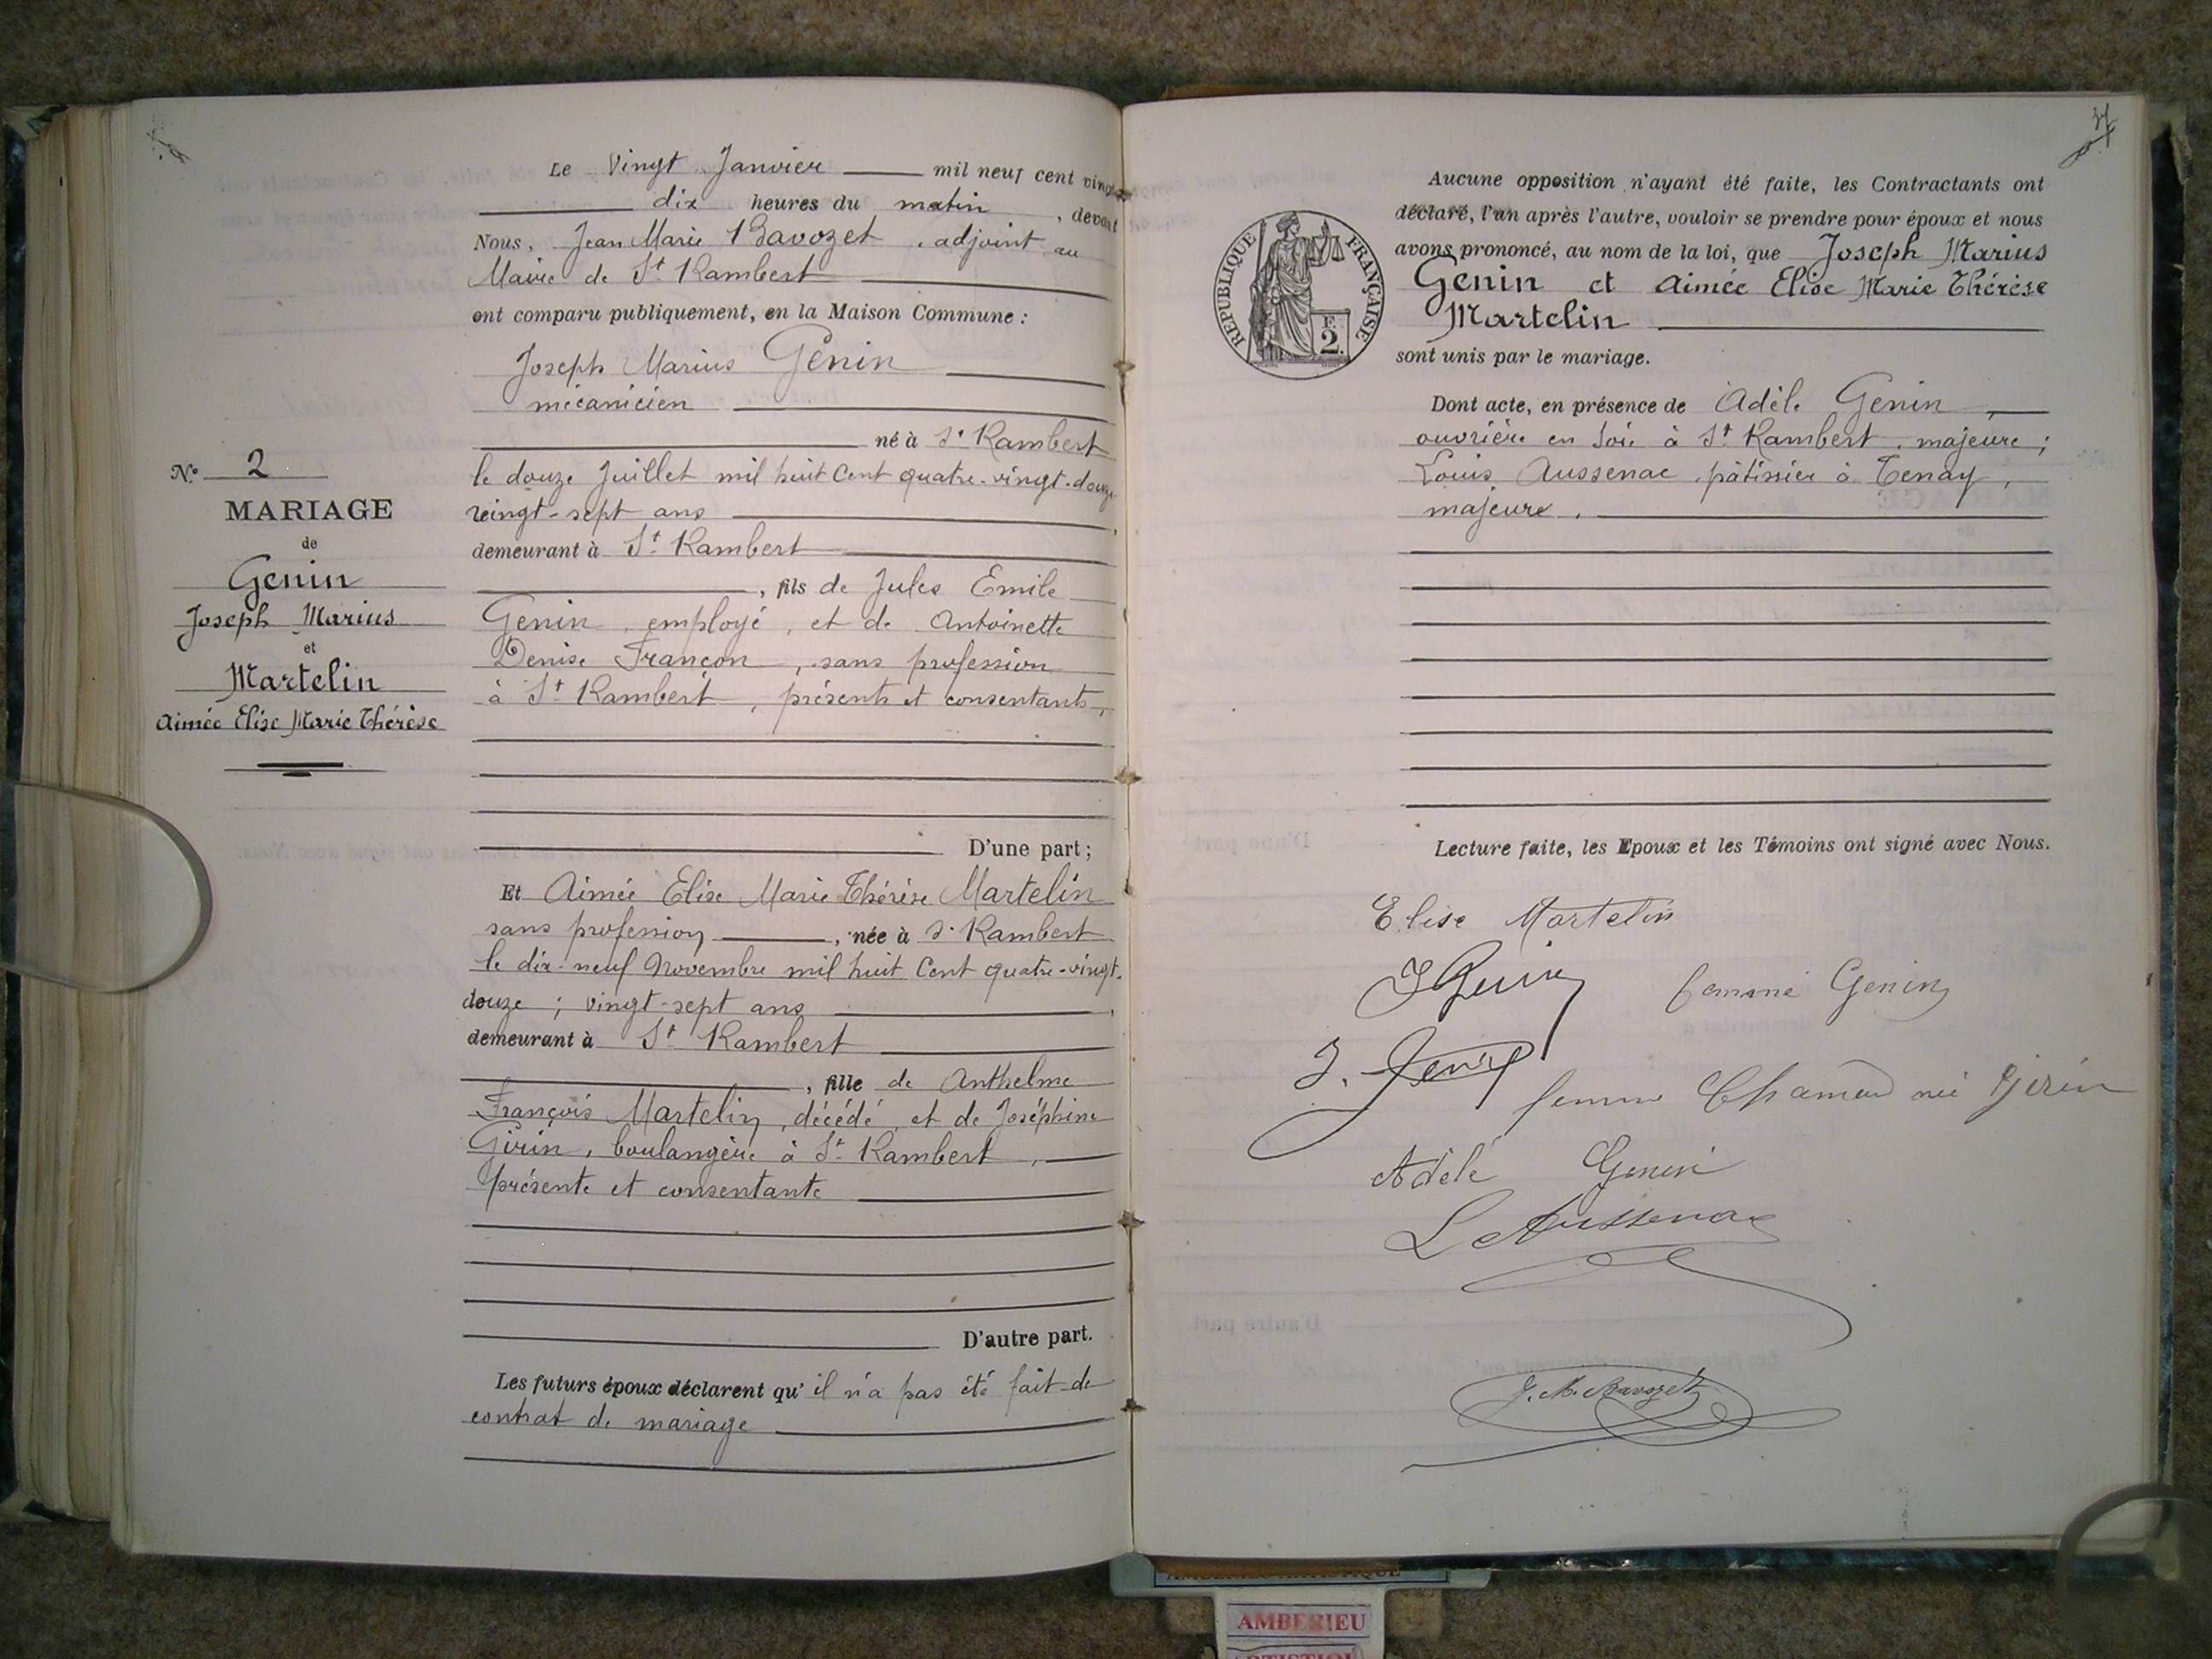 Le Vingt Janvier mil neuf cent vingt
dix heures du matin, devant
Nous, Jean Marie Bavozet, adjoint au
Maire de St Rambert
ont comparu publiquement, en la Maison Commune :
Joseph Marius Genin
mécanicien
né à St Rambert
le douze Juillet mil huit Cent quatre-vingt-douze
vingt-sept ans
demeurant à St Rambert
, fils de Jules Emile
Genin, employé, et de Antoinette
Denise Françon, sans profession
à St Rambert, présents et consentants,
D'une part ;
Et Aimée Elise Marie Thérèse Martelin
sans profession, née à St Rambert
le dix-neuf Novembre mil huit Cent quatre-vingt-
douze ; vingt-sept ans
demeurant à St Rambert
, fille de Anthelme
François Martelin, décédé, et de Joséphine
Girin, boulangère à St Rambert,
présente et consentante
D'autre part.
Les futurs époux déclarent qu'il n'a pas été fait de
contrat de mariage
N° 2
MARIAGE
de
Genin
Joseph Marius
et
Martelin
Aimée Elise Marie Thérèse
Aucune opposition n'ayant été faite, les Contractants ont
déclaré, l'un après l'autre, vouloir se prendre pour époux et nous
avons prononcé, au nom de la loi, que Joseph Marius
Genin et Aimée Elise Marie Thérèse
Martelin
sont unis par le mariage.
REPUBLIQUE FRANÇAISE
F.
2.
Dont acte, en présence de Adèle Genin,
ouvrière en soie à St Rambert, majeure ;
Louis Aussenac, pâtissier à Tenay,
majeurs.
Lecture faite, les Epoux et les Témoins ont signé avec Nous.
Elise Martelin
J Genin femme Genin
J. Genin
femme née Girin
Adèle Genin
L Aussenac
J. M. Bavozet
AMBERIEU